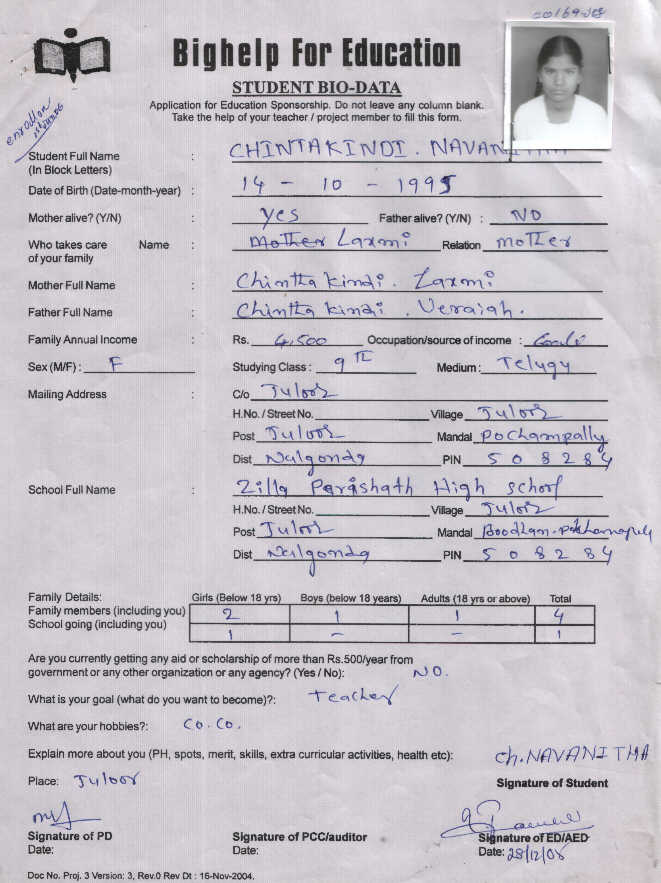 Bighelp For Education
STUDENT BIO-DATA
Application for Education Sponsorship. Do not leave any column blank.
Take the help of your teacher / project member to fill this form.
Student Full Name : CHINTAKINDI. NAVANITHA
(In Block Letters)
Date of Birth (Date-month-year) : 14 - 10 - 1995
Mother alive? (Y/N) : Yes Father alive? (Y/N) : NO
Who takes care Name : Mother Laxmi Relation mother
of your family
Mother Full Name : Chintta kindi. Laxmi
Father Full Name : Chintta kindi. Veraiah.
Family Annual Income : Rs. 4,500 Occupation/source of income :
Sex (M/F) : F Studying Class : 9th Medium : Telugu
Mailing Address : C/o Juloor
H.No. / Street No. Village Juloor
Post Juloor Mandal Pochampally
Dist Nalgonda PIN 508284
School Full Name : Zilla Parishath High School
H.No. / Street No. Village Juloor
Post Juloor Mandal
Dist Nalgonda PIN 508284
Family Details: Girls (Below 18 yrs) Boys (below 18 years) Adults (18 yrs or above) Total
Family members (including you) 2 1 1 4
School going (including you) 1 - - 1
Are you currently getting any aid or scholarship of more than Rs.500/year from
government or any other organization or any agency? (Yes / No): NO.
What is your goal (what do you want to become)?: Teacher
What are your hobbies?: Co. Co.
Explain more about you (PH, spots, merit, skills, extra curricular activities, health etc): Ch. NAVANITHA
Place: Juloor Signature of Student
Signature of PD Signature of PCC/auditor Signature of ED/AED
Date: Date: Date: 28/12/08
Doc No. Proj. 3 Version: 3, Rev.0 Rev Dt : 16-Nov-2004.